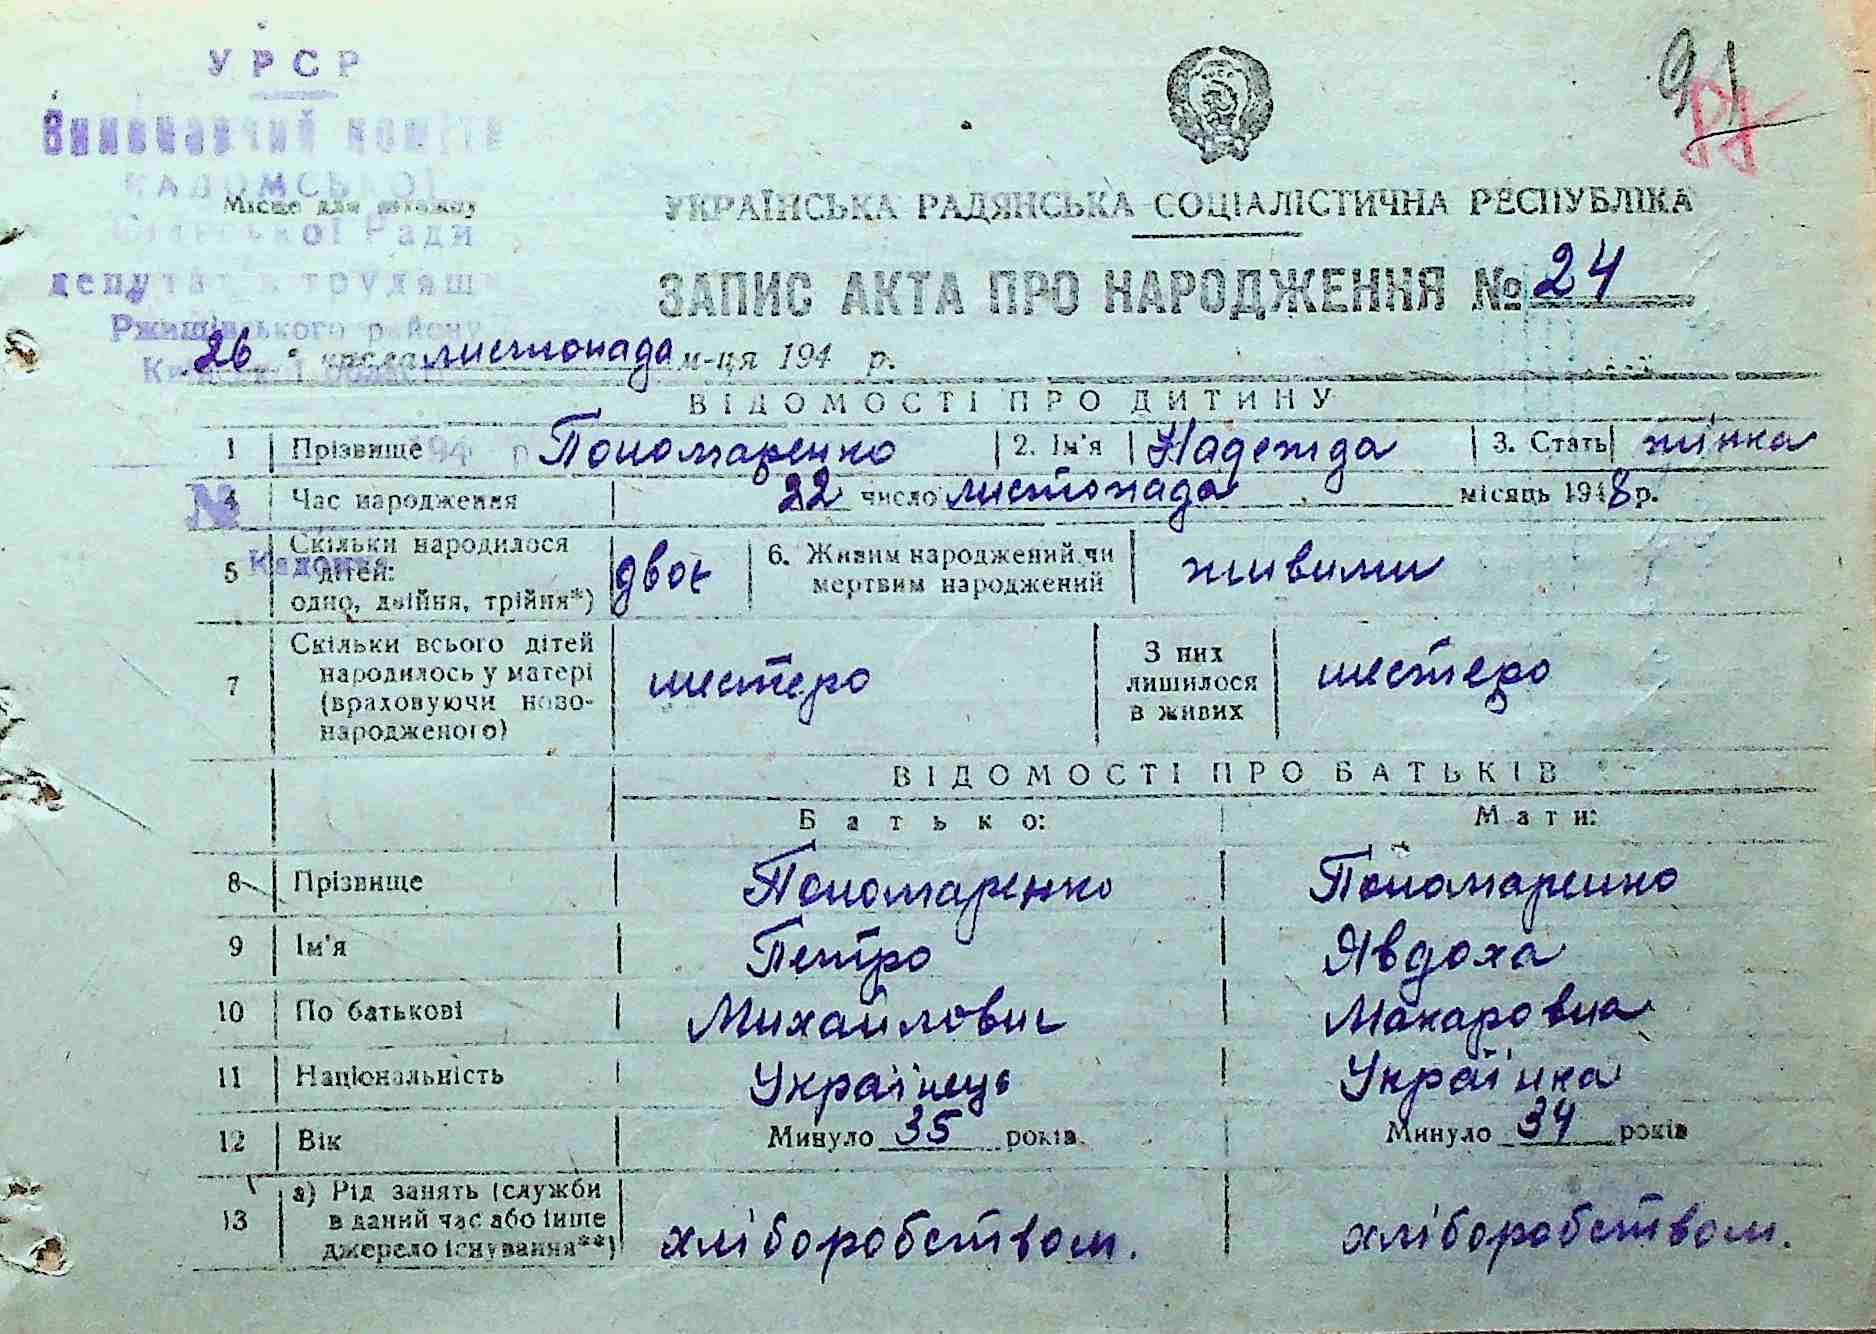 УРСР
Виконавчий коміте
КАДОМСЬКОЇ
Місце для штампу
Сільської Ради
депутатів трудящ
Ржищівського району
91
УКРАЇНСЬКА РАДЯНСЬКА СОЦІАЛІСТИЧНА РЕСПУБЛІКА
ЗАПИС АКТА ПРО НАРОДЖЕННЯ № 24
26 числа листопада м-ця 194 р.
ВІДОМОСТІ ПРО ДИТИНУ
1 Прізвище Пономаренко 2. Ім'я Надежда 3. Стать жінка
4 Час народження 22 число листопада місяць 1948 р.
5 Скільки народилося дітей: одно, двійня, трійня*) двоє 6. Живим народжений чи мертвим народжений живими
7 Скільки всього дітей народилось у матері (враховуючи новонародженого) шестеро З них лишилося в живих шестеро
ВІДОМОСТІ ПРО БАТЬКІВ
Батько: Мати:
8 Прізвище Пономаренко Пономаренко
9 Ім'я Петро Явдоха
10 По батькові Михайлович Макаровна
11 Національність Українець Українка
12 Вік Минуло 35 років. Минуло 34 років
13 а) Рід занять (служби в даний час або інше джерело існування**) хліборобством. хліборобством.